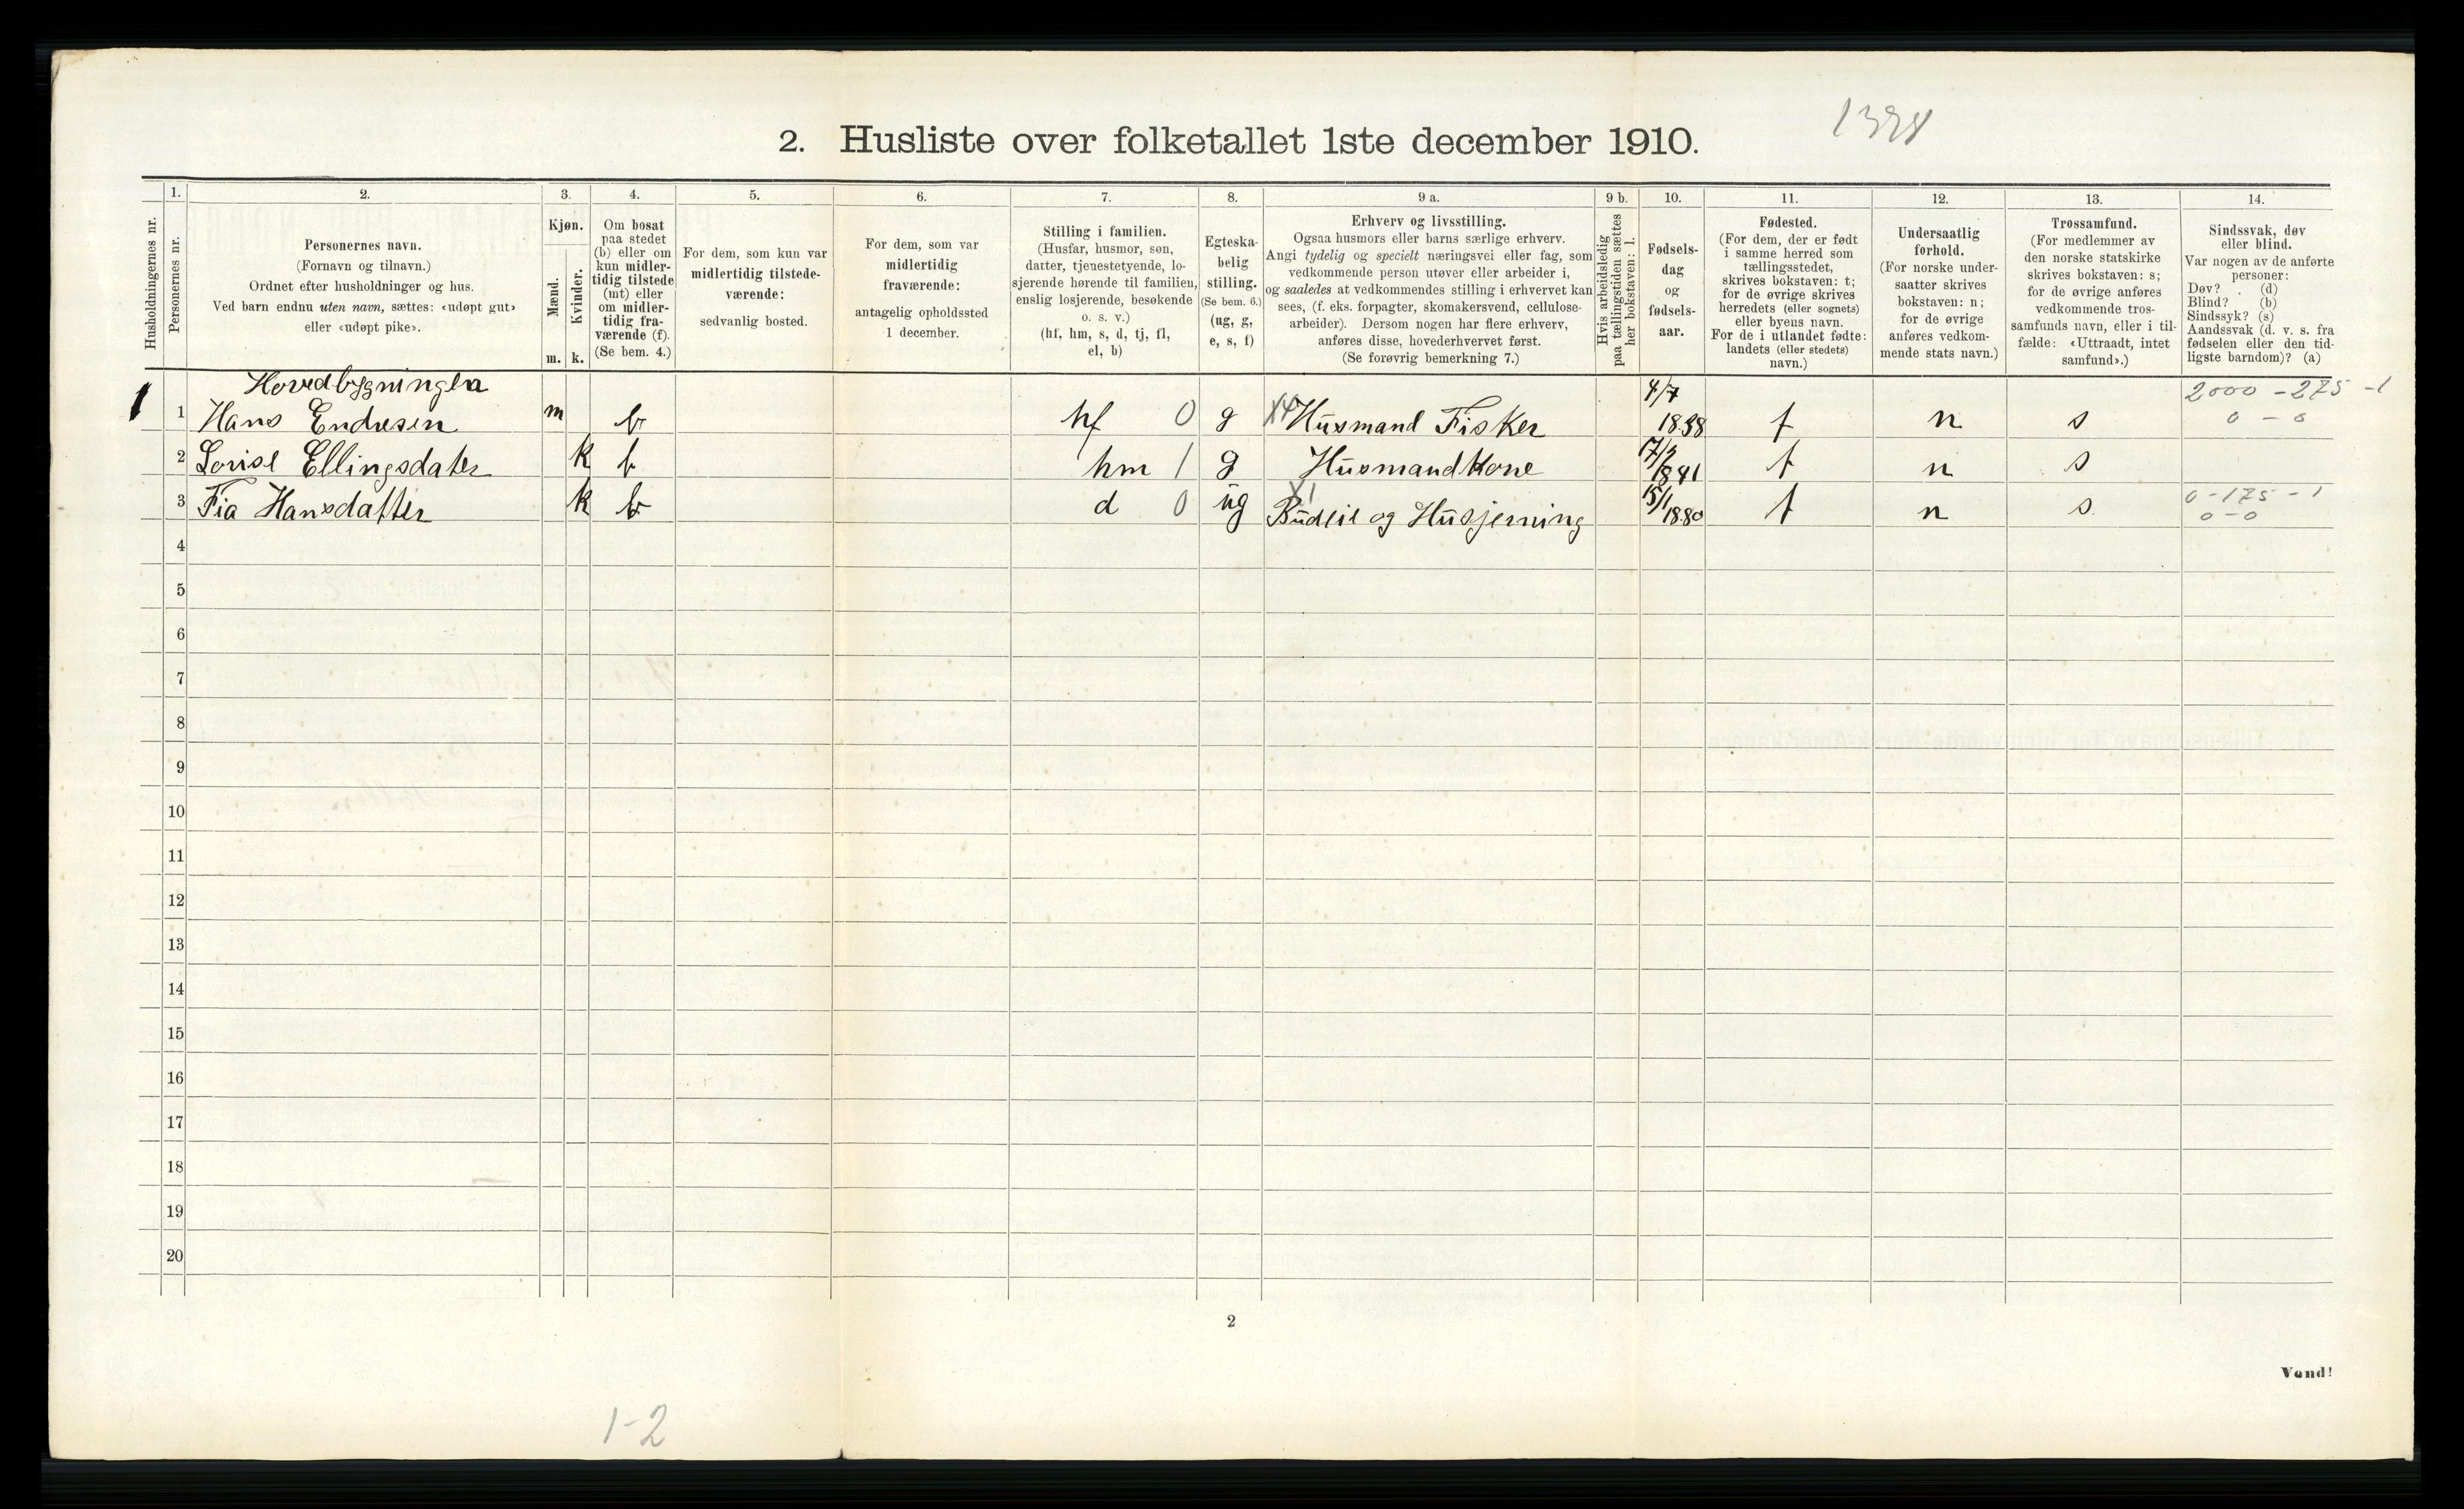 1398
2. Husliste over folketallet 1ste december 1910.
1. 2. 3. 4. 5. 6. 7. 8. 9 a. 9 b. 10. 11. 12. 13. 14.
Husholdningernes nr.
Personernes nr.
Personernes navn.
(Fornavn og tilnavn.)
Ordnet efter husholdninger og hus.
Ved barn endnu uten navn, sættes: «udøpt gut»
eller «udøpt pike».
Kjøn.
Mænd.
Kvinder.
m. k.
Om bosat
paa stedet
(b) eller om
kun midler-
tidig tilstede
(mt) eller
om midler-
tidig fra-
værende (f).
(Se bem. 4.)
For dem, som kun var
midlertidig tilstede-
værende:
sedvanlig bosted.
For dem, som var
midlertidig
fraværende:
antagelig opholdssted
1 december.
Stilling i familien.
(Husfar, husmor, søn,
datter, tjenestetyende, lo-
sjerende hørende til familien,
enslig losjerende, besøkende
o. s. v.)
(hf, hm, s, d, tj, fl,
el, b)
Egteska-
belig
stilling.
(Se bem. 6.)
(ug, g,
e, s, f)
Erhverv og livsstilling.
Ogsaa husmors eller barns særlige erhverv.
Angi tydelig og specielt næringsvei eller fag, som
vedkommende person utøver eller arbeider i,
og saaledes at vedkommendes stilling i erhvervet kan
sees, (f. eks. forpagter, skomakersvend, cellulose-
arbeider). Dersom nogen har flere erhverv,
anføres disse, hovederhvervet først.
(Se forøvrig bemerkning 7.)
Hvis arbeidsledig
paa tællingstiden sættes
her bokstaven: l.
Fødsels-
dag
og
fødsels-
aar.
Fødested.
(For dem, der er født
i samme herred som
tællingsstedet,
skrives bokstaven: t;
for de øvrige skrives
herredets (eller sognets)
eller byens navn.
For de i utlandet fødte:
landets (eller stedets)
navn.)
Undersaatlig
forhold.
(For norske under-
saatter skrives
bokstaven: n;
for de øvrige
anføres vedkom-
mende stats navn.)
Trossamfund.
(For medlemmer av
den norske statskirke
skrives bokstaven: s;
for de øvrige anføres
vedkommende tros-
samfunds navn, eller i til-
fælde: «Uttraadt, intet
samfund».)
Sindssvak, døv
eller blind.
Var nogen av de anførte
personer:
Døv? . (d)
Blind? (b)
Sindssyk? (s)
Aandssvak (d. v. s. fra
fødselen eller den tid-
ligste barndom)? (a)
Hovedbygningen
1 1 Hans Endresen m b hf 0 g X4 Husmand Fisker 4/7 1838 t n s 2000 - 275 - 1 0 - 0
2 Lovise Ellingsdater k b hm 1 g Husmandkone 1841 t n s
3 Fia Hansdatter k b d 0 ug X1 Budeie og Husjerning 15/1 1880 t n s 0 - 175 - 1 0 - 0
4
5
6
7
8
9
10
11
12
13
14
15
16
17
18
19
20
2
Vend!
1-2